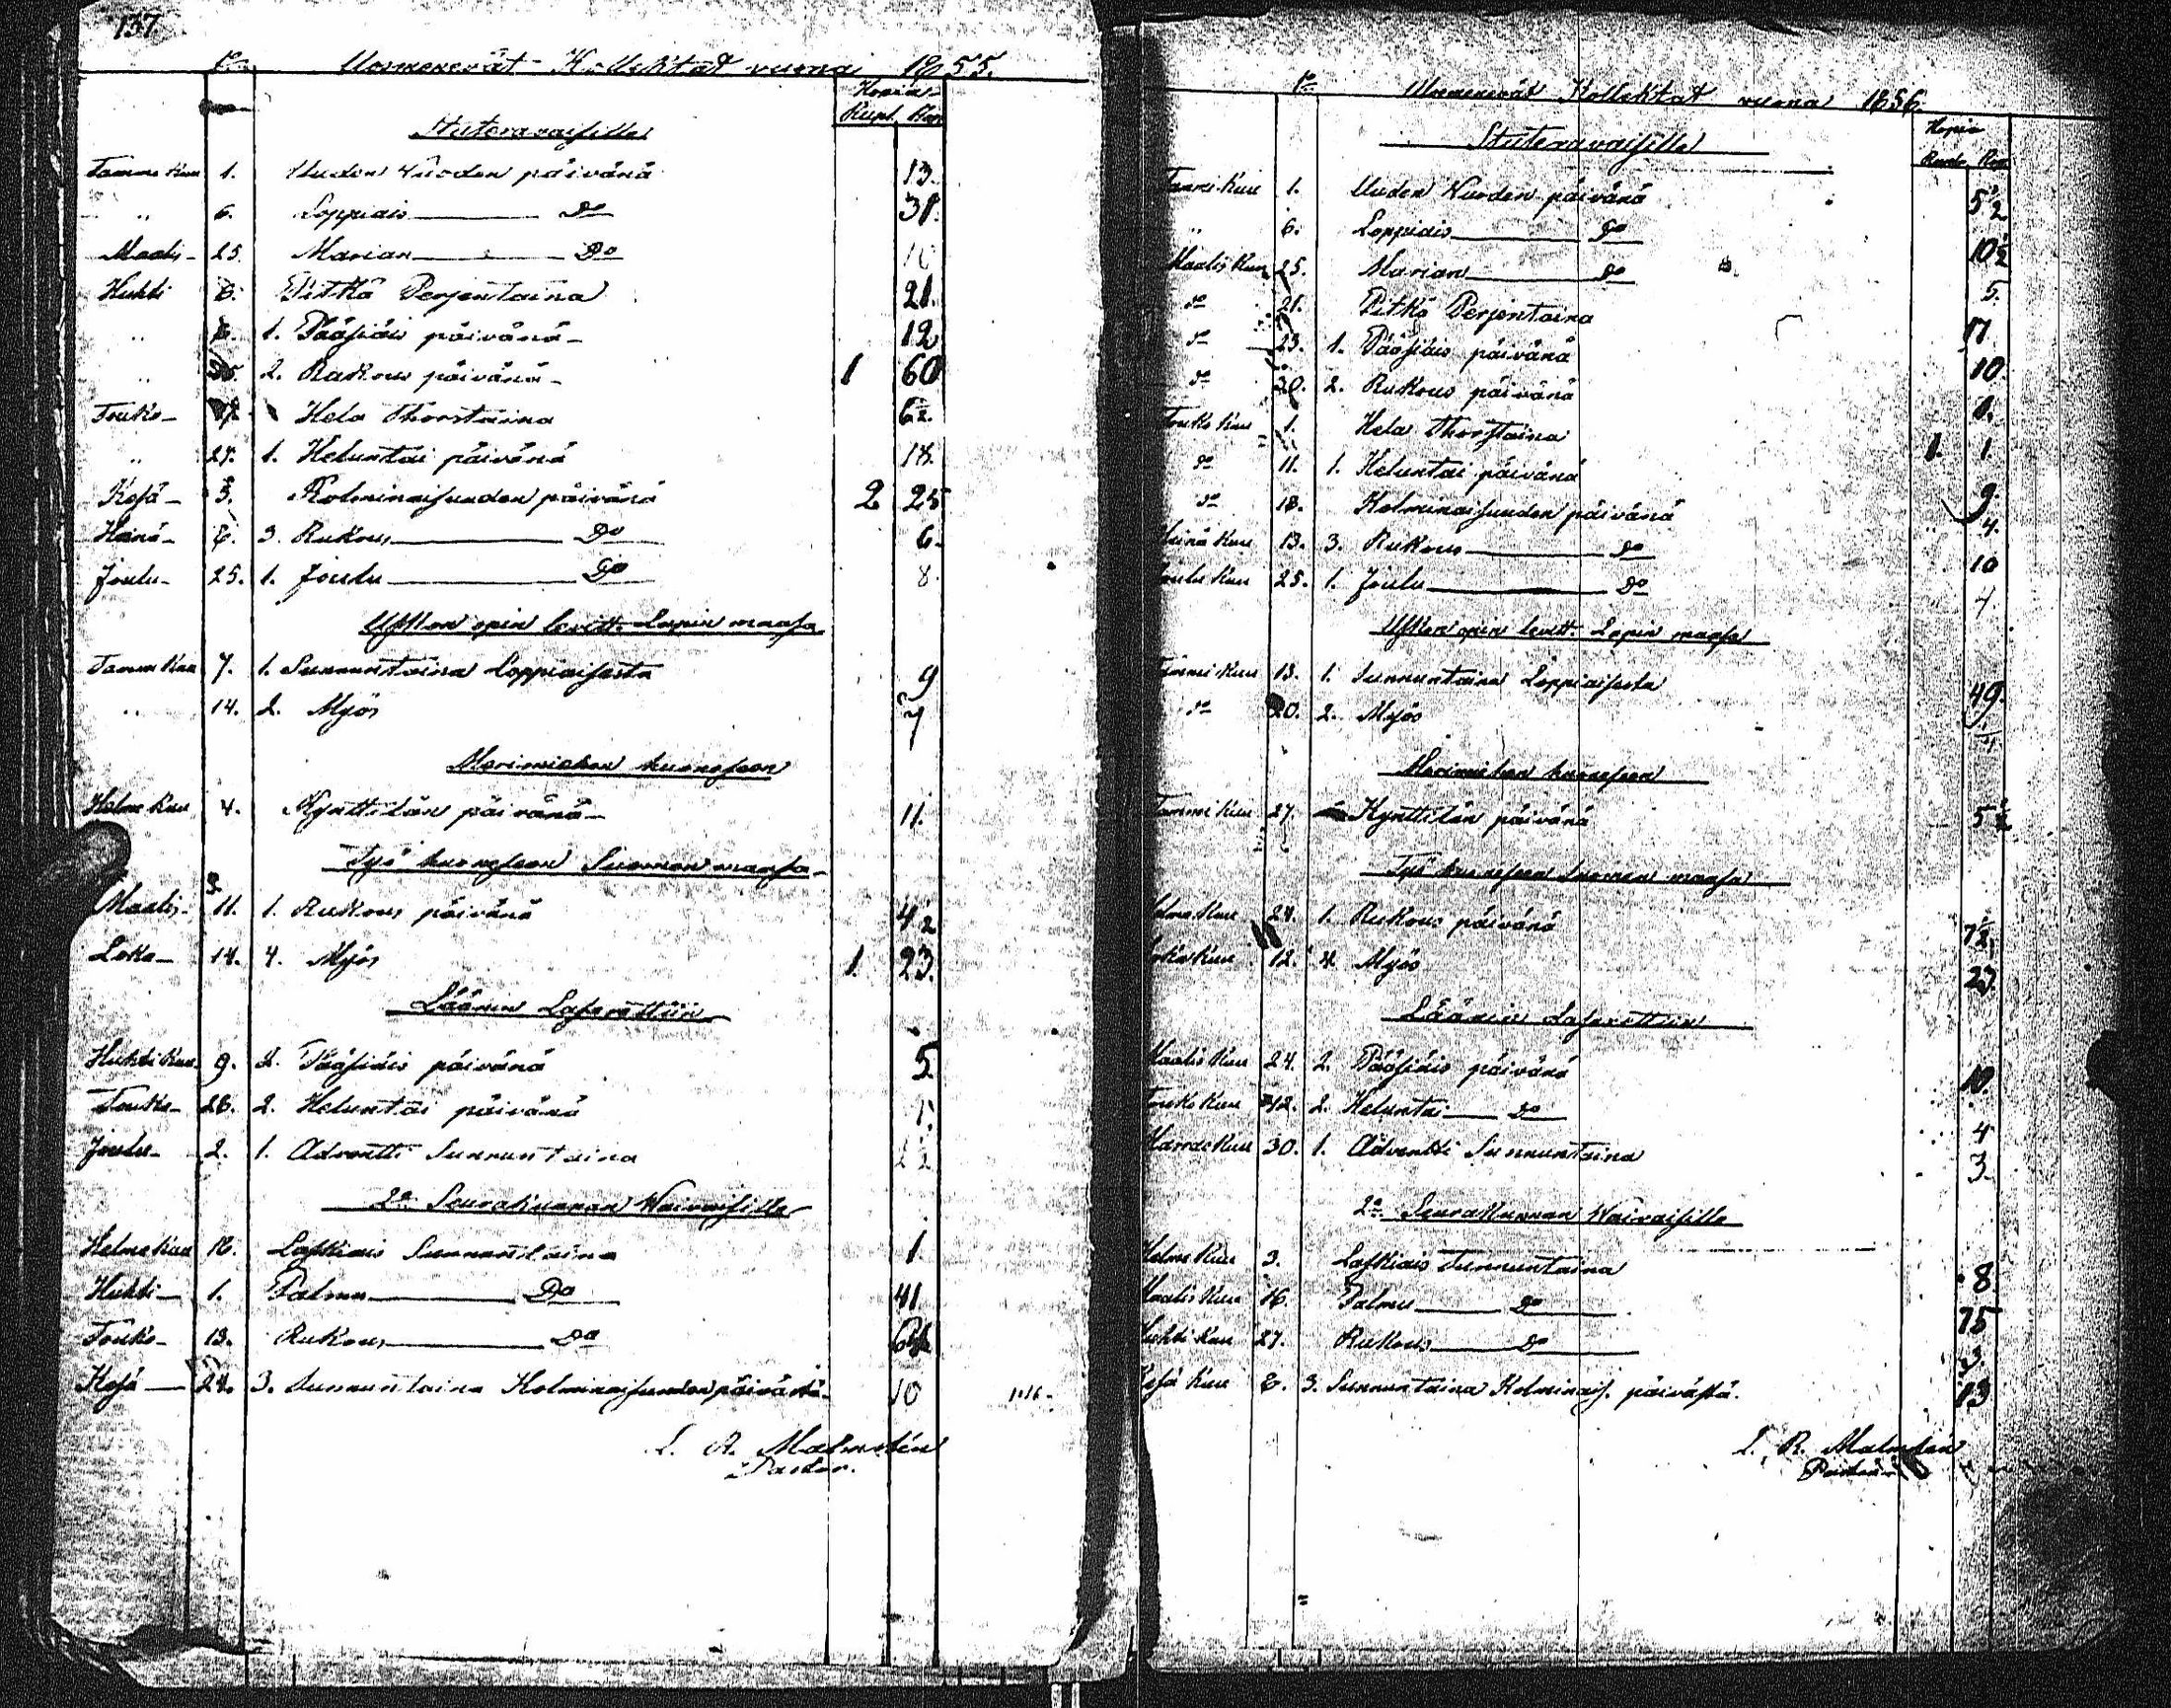 137
1o Uosmenevät Kollektat vuona 1855.
Hopia
Rupl. Kop
Stuteravaisille
Tamme Kuu 1. Uuden Wuoden päivänä 13.
" 6. Loppiais Do 31.
Maalis- 25. Marian Do 10
Huhti 6. Pitkä Perjentaina 21.
" 8. 1. Pääsiäis päivänä 12
" 2. Rukous päivänä 1 60
Touko- 17. Hela Thorstaina
" 27. 1. Heluntai päivänä 18.
Kesä- 3. Kolminaisuuden päivänä 2 25
Heinä- 8. 3. Rukous Do 6.
Joulu- 25. 1. Joulu Do 8.
Uskon opin levitt. Lapin maasa
Tamme Kuu 7. 1. Sunnuntaina Loppiaisesta 9
" 14. 2. Myös 7
Merimiehen huoneseen
Helme Kuu 4. Kynttilän päivänä 11.
Työ huoneseen Suomen maasa
Maalis- 11. 1. Rukous päivänä 42
Loka- 14. 4. Myös 1 23.
Läänin Lasarettiin
Huhti Kuu 9. 2. Pääsiäis päivänä 5
Touko- 28. 2. Heluntai päivänä
Joulu- 2. 1. Adventti Sunnuntaina
2o Seurakunnan Waivaisille
Helme Kuu 18. Laskiais Sunnuntaina 1.
Huhti 1. Palmu Do 41
Touko- 13. Rukous Do
Kesä 24. 3. Sunnuntaina Kolminaisuuden päivästä 10
L. A. Malmstén
Pastor.
1o Uosmenevät Kollektat vuona 1856.
Hopia
Rupl. Kop
Stuteravaisille
Tammi Kuu 1. Uuden Wuoden päivänä 5½
" 6. Loppiais Do 10½
Maalis Kuu 25. Marian Do 5.
Do 21. Pitkä Perjentaina 17
Do 23. 1. Pääsiäis päivänä 10.
Do 30. 2. Rukous päivänä
Touko Kuu 1. Hela Thorstaina 1. 1.
Do 11. 1. Heluntai päivänä 9.
Do 18. Kolminaisuuden päivänä 4.
Heinä Kuu 13. 3. Rukous Do 10
Joulu Kuu 25. 1. Joulu Do 4.
Uskon opin levitt. Lapin maasa
Tammi Kuu 13. 1. Sunnuntaina Loppiaisesta 49.
Do 20. 2. Myös
Merimiehen huoneseen
Tammi Kuu 27. Kynttilän päivänä 5½
Työ huoneseen Suomen maasa
Helme Kuu 24. 1. Rukous päivänä 7½
Loka Kuu 12. 4. Myös 23.
Läänin Lasarettiin
Maalis Kuu 24. 2. Pääsiäis päivänä 10.
Touko Kuu 12. 2. Heluntai Do 4
Marras Kuu 30. 1. Adventti Sunnuntaina 3.
2o Seurakunnan Waivaisille
Helme Kuu 3. Laskiais Sunnuntaina 8.
Maalis Kuu 16. Palmu Do 75
Huhti Kuu 27. Rukous Do 3.
Kesä Kuu 8. 3. Sunnuntaina Kolminais. päivästä. 13
L. A. Malmstén
Pastor